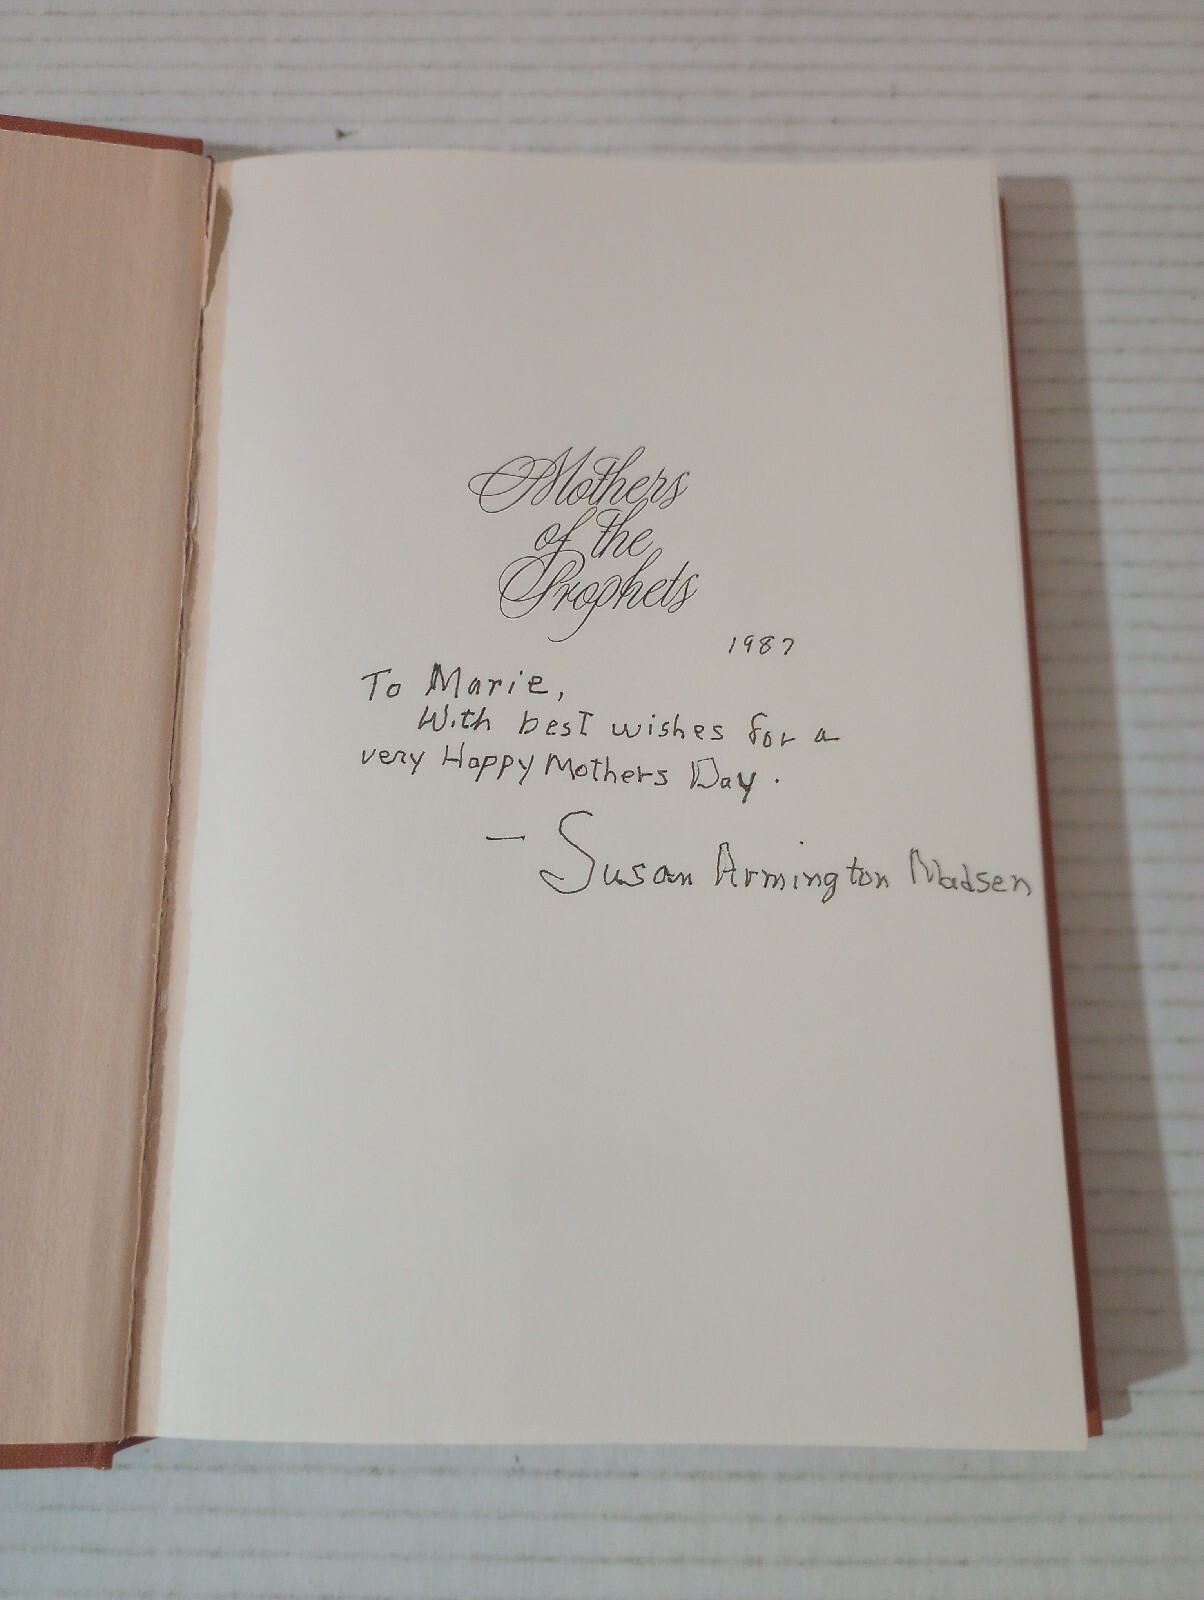 Mothers
of the
Prophets
1987
To Marie,
With best wishes for a
very Happy Mothers Day.
– Susan Armington Madsen